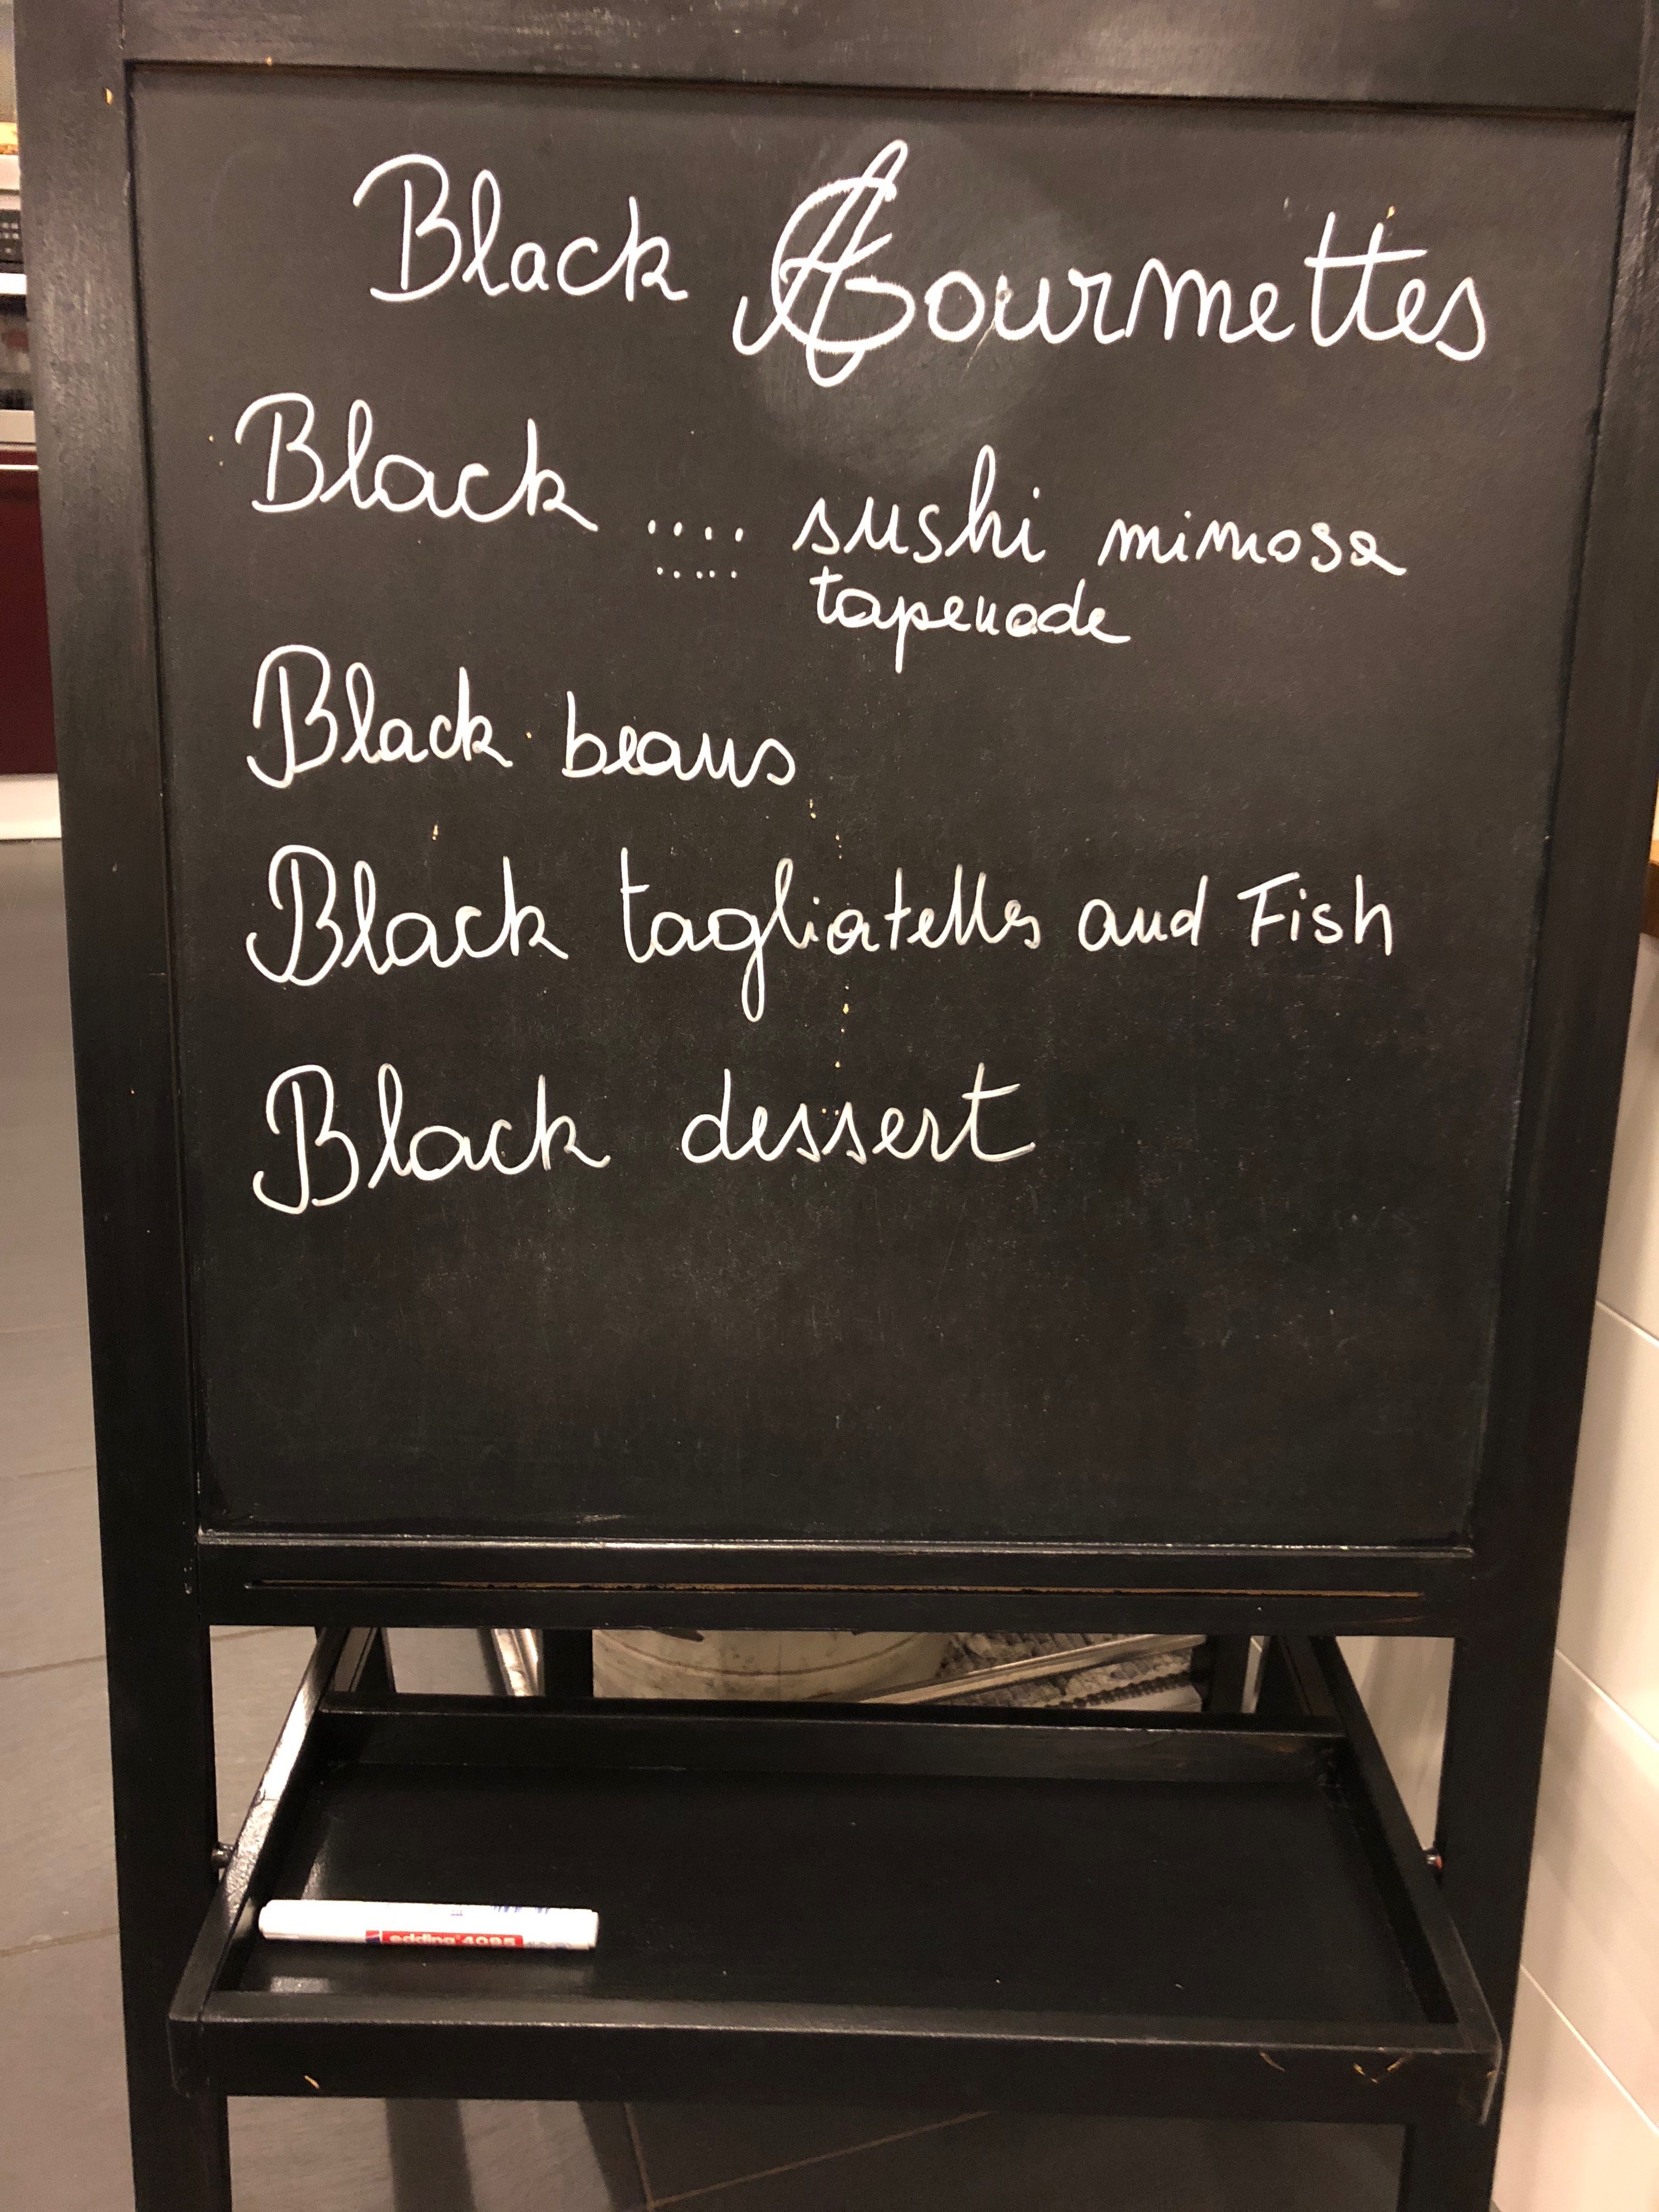 Black Gourmettes
Black .... sushi mimosa
..... tapenade
Black beans
Black tagliatelles and Fish
Black dessert
edding 4095